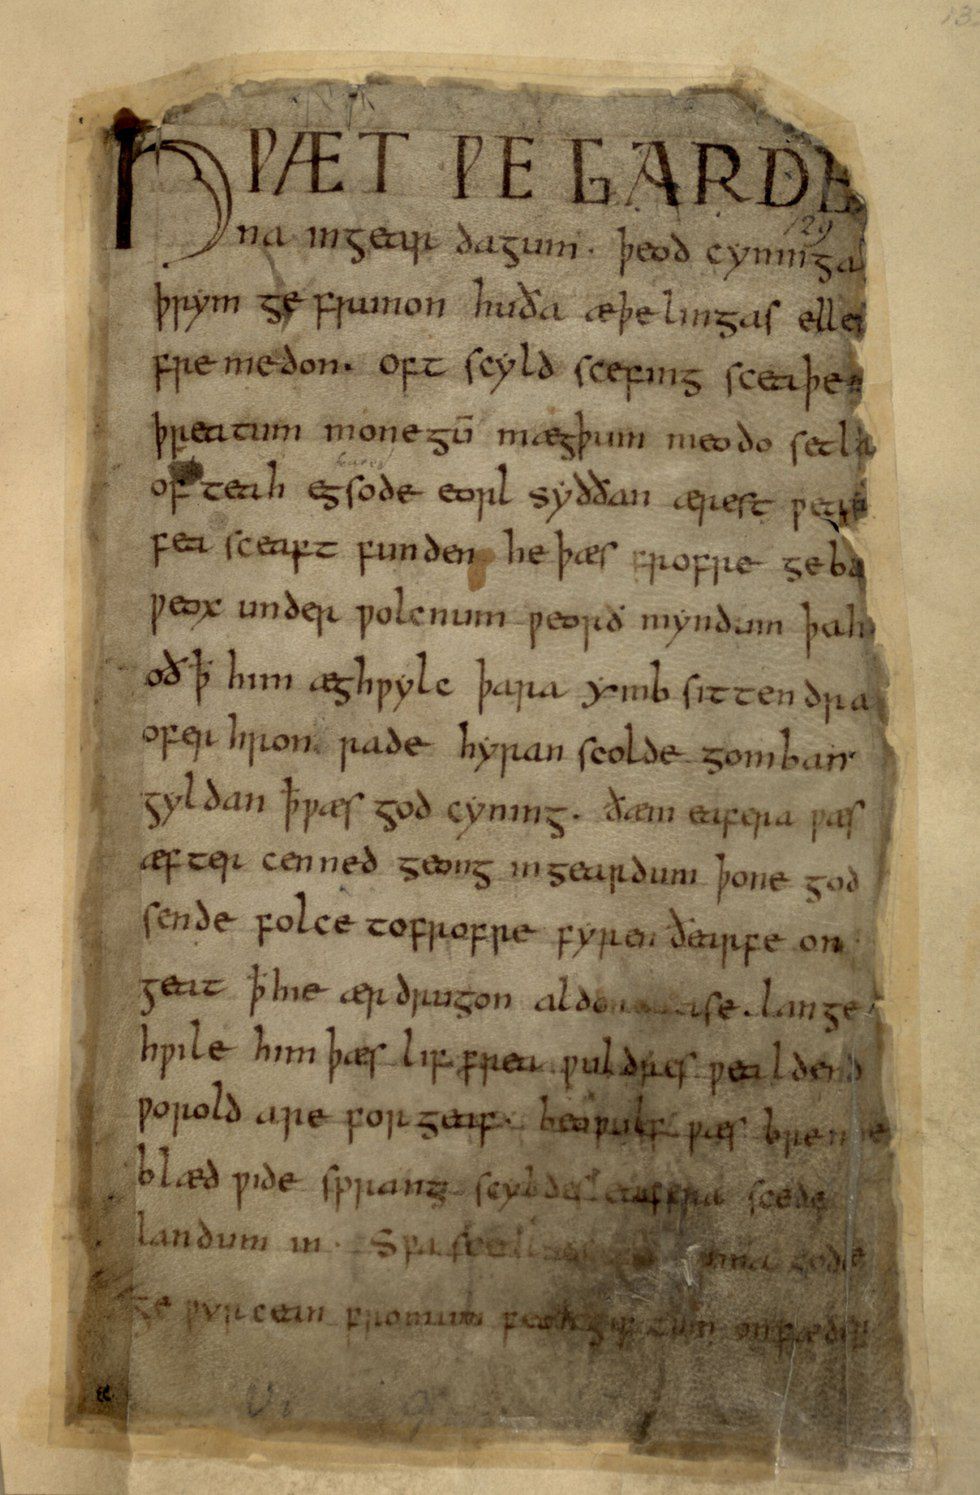 HǷÆT ǷE GARDE
na ingear dagum. þeod cyninga
þrym ge frunon huða æþelingas elle
fremedon. oft scyld scefing sceaþe
þreatum monegū mægþum meodo setla
of teah egsode eorl syððan ærest ƿear
fea sceaft funden he þæs frofre geba
ƿeox under ƿolcnum ƿeorð myndum þah
oð ꝥ him æghƿylc þara ymb sittendra
ofer hron rade hyran scolde gomban
gyldan ꝥ ƿæs god cyning. ðæm eafera ƿæs
æfter cenned geong in geardum þone god
sende folce tofrofre fyren ðearfe on
geat ꝥ hie ær drugon aldor ase. lange
hƿile him þæs lif frea ƿuldres ƿealdend
ƿorold are for geaf. beoƿulf ƿæs breme
blæd ƿide sprang scyldes eafera scede
landum in. Sƿa sceal guma gode
ge ƿyrcean fromum feoh giftum on fæder